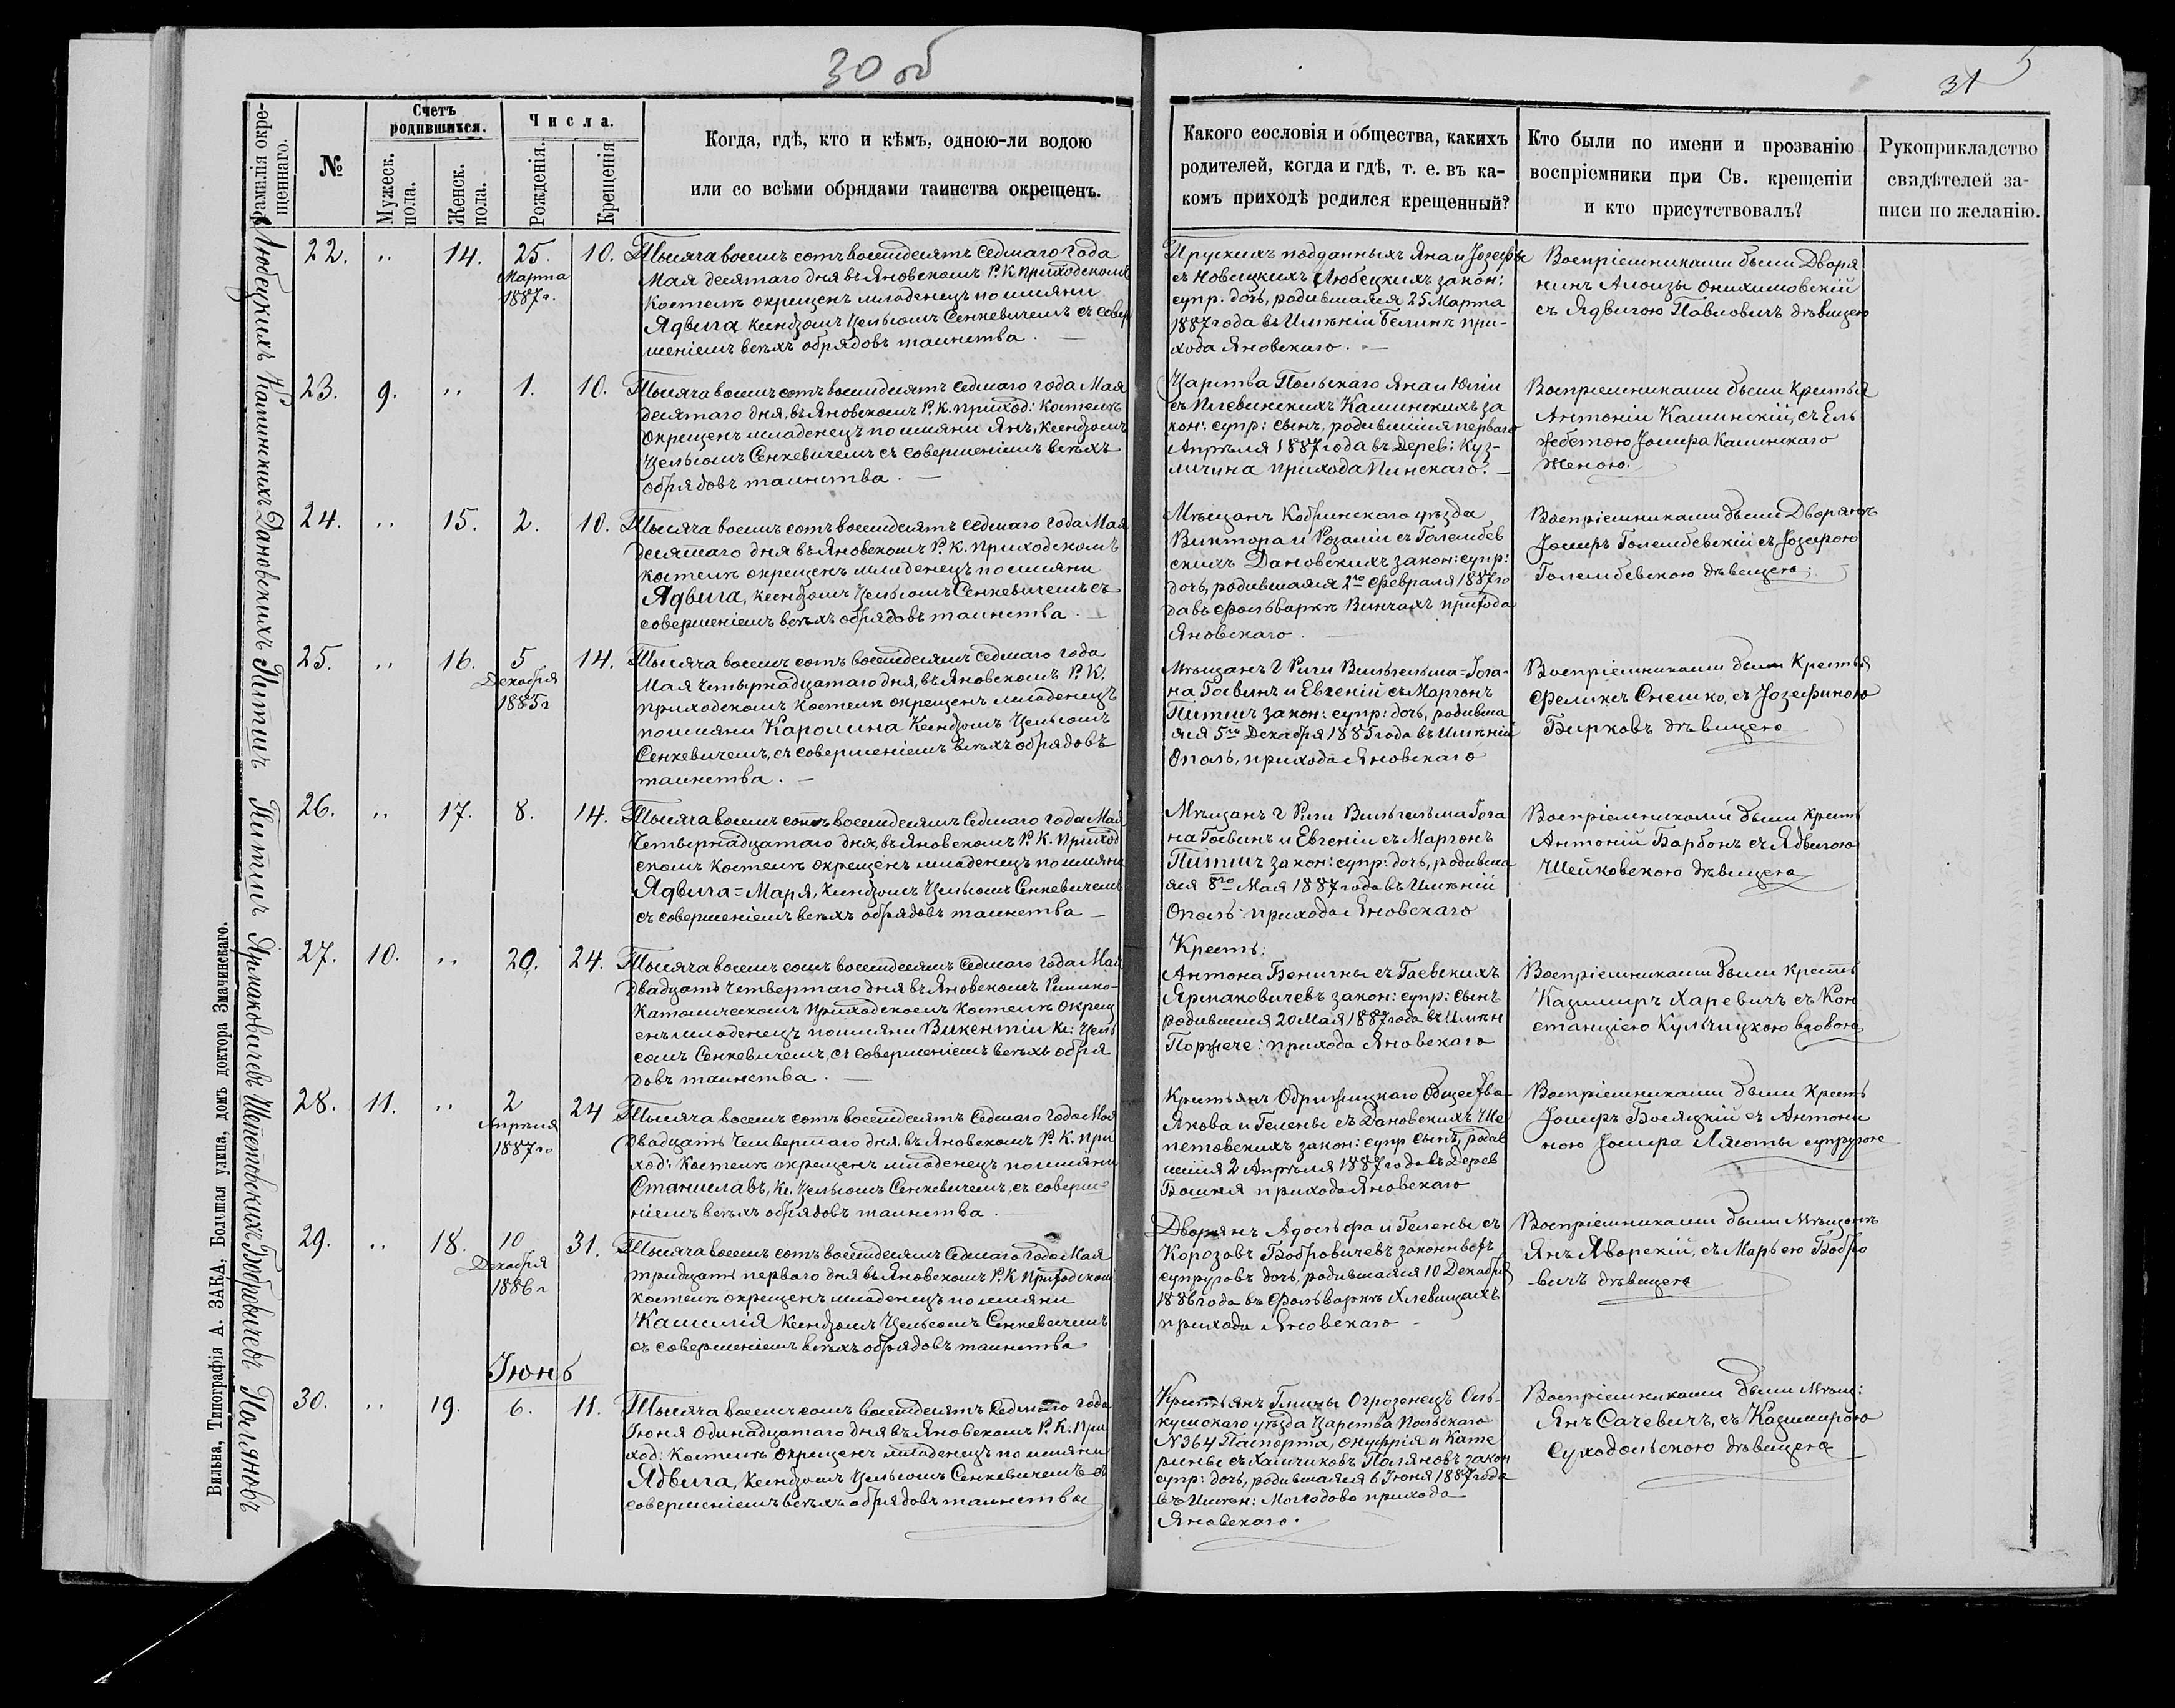 30 об
31
5
Фамилія окре-
щеннаго.
№
Счетъ
родившихся.
Мужеск.
пола.
Женск.
пола.
Числа.
Рожденія.
Крещенія
Когда, гдѣ, кто и кѣмъ, одною-ли водою
или со всѣми обрядами таинства окрещенъ.
Какого сословія и общества, какихъ
родителей, когда и гдѣ, т. е. въ ка-
комъ приходѣ родился крещенный?
Кто были по имени и прозванію
воспріемники при Св. крещеніи
и кто присутствовалъ?
Рукоприкладство
свидѣтелей за-
писи по желанію.
Любецкихъ
22. " 14. 25.
Марта
1887 г.
10.
Тысяча восемь сотъ восемдесятъ седмаго года
Мая десятаго дня въ Яновскомъ Р. К. приходскомъ
Костелѣ окрещенъ младенецъ по имяни
Ядвига Ксендзомъ Цельсомъ Сенкевичемъ съ совер
шеніемъ всѣхъ обрядовъ таинства.
Прускихъ подданныхъ Яна и Іозефы
съ Новицкихъ Любецкихъ закон:
супр: дочь, родившаяся 25 Марта
1887 года въ Имѣніи Белинѣ при-
хода Яновскаго.
Воспріемниками были Дворя
нинъ Алоизы Онихимовскій
съ Ядвигою Павловичъ дѣвицею
Каминскихъ
23. 9. " 1. 10.
Тысяча восемь сотъ восемдесятъ седмаго года Мая
десятаго дня, въ Яновскомъ Р. К. приход: Костелѣ
окрещенъ младенецъ по имяни Янъ, Ксендзомъ
Цельсомъ Сенкевичемъ съ совершеніемъ всѣхъ
обрядовъ таинства.
Царства Польскаго Яна и Юліи
съ Плевинскихъ Каминскихъ за
кон: супр: сынъ, родившійся перваго
Апрѣля 1887 года въ Дерев: Куз-
личина прихода Пинскаго.
Воспріемниками были Крестья
Антоній Каминскій, съ Ель
жбетою Іосифа Каминскаго
женою.
Дановскихъ
24. " 15. 2. 10.
Тысяча восемь сотъ восемдесятъ седмаго года Мая
десятаго дня въ Яновскомъ Р. К. приходскомъ
костелѣ окрещенъ младенецъ по имяни
Ядвига, Ксендзомъ Цельсомъ Сенкевичемъ съ
совершеніемъ всѣхъ обрядовъ таинства.
Мѣщанъ Кобринскаго уѣзда
Виктора и Розаліи съ Голембев
скихъ Дановскихъ закон: супр:
дочь, родившаяся 2го Февраля 1887 го
да въ Фольваркѣ Винчахъ прихода
Яновскаго.
Воспріемниками были Дворянъ
Іосифъ Голембевскій съ Іозефою
Голембевскою дѣвицею;
Питшъ
25. " 16. 5
Декабря
1885 г
14.
Тысяча восемь сотъ восемдесятъ седмаго года
Мая Четырнадцатаго дня, въ Яновскомъ Р. К.
приходскомъ костелѣ окрещенъ младенецъ
по имяни Каролина Ксендзомъ Цельсомъ
Сенкевичемъ, съ совершеніемъ всѣхъ обрядовъ
таинства.
Мѣщанъ г Риги Вильгельма=Іога-
на Гсевинъ и Евгеній съ Маргонъ
Питшъ закон: супр: дочь, родивша
яся 5го Декабря 1885 года въ Имѣніи
Ополь, прихода Яновскаго
Воспріемниками были Крестья
Феликсъ Снешко, съ Іозефиною
Бирковъ дѣвицею
Питшъ
26. " 17. 8. 14.
Тысяча восемь сотъ восемдесятъ седмаго года Мая
Четырнадцатаго дня, въ Яновскомъ Р. К. Приход
скомъ костелѣ окрещенъ младенецъ по имяни
Ядвига=Марія, Ксендзомъ Цельсомъ Сенкевичемъ
съ совершеніемъ всѣхъ обрядовъ таинства
Мѣщанъ г Риги Вильгельма Іога
на Гсевинъ и Евгеніи съ Маргонъ
Питшъ закон: супр: дочь, родивша
яся 8го Мая 1887 года въ Имѣніи
Ополь: прихода Яновскаго
Воспріемниками были Крестъ
Антоній Барбонъ съ Ядвигою
Шейковскою дѣвицею
Ярмаковичевъ
27. 10. " 20. 24.
Тысяча восемь сотъ восемдесятъ седмаго года Мая
двадцать четвертаго дня въ Яновскомъ Римско-
Католическомъ Приходскомъ Костелѣ окрещ
енъ младенецъ по имяни Викентій Кс: Цель
сомъ Сенкевичемъ, съ совершеніемъ всѣхъ обря
довъ таинства.
Крестъ:
Антона Бенигны съ Гаевскихъ
Ярмаковичевъ закон: супр: сынъ
родившійся 20 Мая 1887 года въ Имѣн
Поржече: прихода Яновскаго
Воспріемниками были Крестъ
Казимиръ Харевичъ съ Кон
станціею Кульчицкою вдовою
Шепетовскихъ
28. 11. " 2
Апрѣля
1887 го
24
Тысяча восемь сотъ восемдесятъ седмаго года Мая
двадцать Четвертаго дня, въ Яновскомъ Р. К. при
ход: Костелѣ окрещенъ младенецъ по имяни
Станиславъ, Кс. Цельсомъ Сенкевичемъ, съ соверше
ніемъ всѣхъ обрядовъ таинства.
Крестьянъ Одрижицкаго Общества
Якова и Гелены съ Дановскихъ Ше
петовскихъ закон: супр сынъ, родив
шійся 2 Апрѣля 1887 года въ Дерев
Башня прихода Яновскаго
Воспріемниками были Крестъ
Іосифъ Босяцкій съ Антони
ною Іосифа Лясоты супругою
Бобровичевъ
29. " 18. 10
Декабря
1886 г
31.
Тысяча восемь сотъ восемдесятъ седмаго года Мая
тридцать перваго дня въ Яновскомъ Р. К. Приходскомъ
костелѣ окрещенъ младенецъ по имяни
Камилія Ксендзомъ Цельсомъ Сенкевичемъ
съ совершеніемъ всѣхъ обрядовъ таинства
Дворянъ Адольфа и Гелены съ
Корозовъ Бобровичевъ законныхъ
супруговъ дочь, родившаяся 10 Декабря
1886 года въ Фольваркѣ Хлевищахъ
прихода Яновскаго
Воспріемниками были Мѣщанъ
Янъ Яворскій, съ Марьею Бобро
вичъ дѣвицею
Іюнь
Поляновъ
30. " 19. 6. 11.
Тысяча восемь сотъ восемдесятъ седмаго года
Іюня Одинадцатаго дня въ Яновскомъ Р. К. При
ход: Костелѣ окрещенъ младенецъ по имяни
Ядвига, Ксендзомъ Цельсомъ Сенкевичемъ съ
совершеніемъ всѣхъ обрядовъ таинства
Крестьянъ Гмины Огрозенецъ Оль-
кушскаго уѣзда Царства Польскаго
N 364 Паспорта, Онуфрія и Кате
рины съ Халчиковъ Поляновъ закон
супр: дочь, родившаяся 6 Іюня 1887 года
въ Имѣн: Молодово прихода
Яновскаго.
Воспріемниками были Мѣщ:
Янъ Сачевичъ, съ Казимирою
Суходольскою дѣвицею
Вильна, Типографія А. ЗАКА, Большая улица, домъ доктора Змачинскаго.